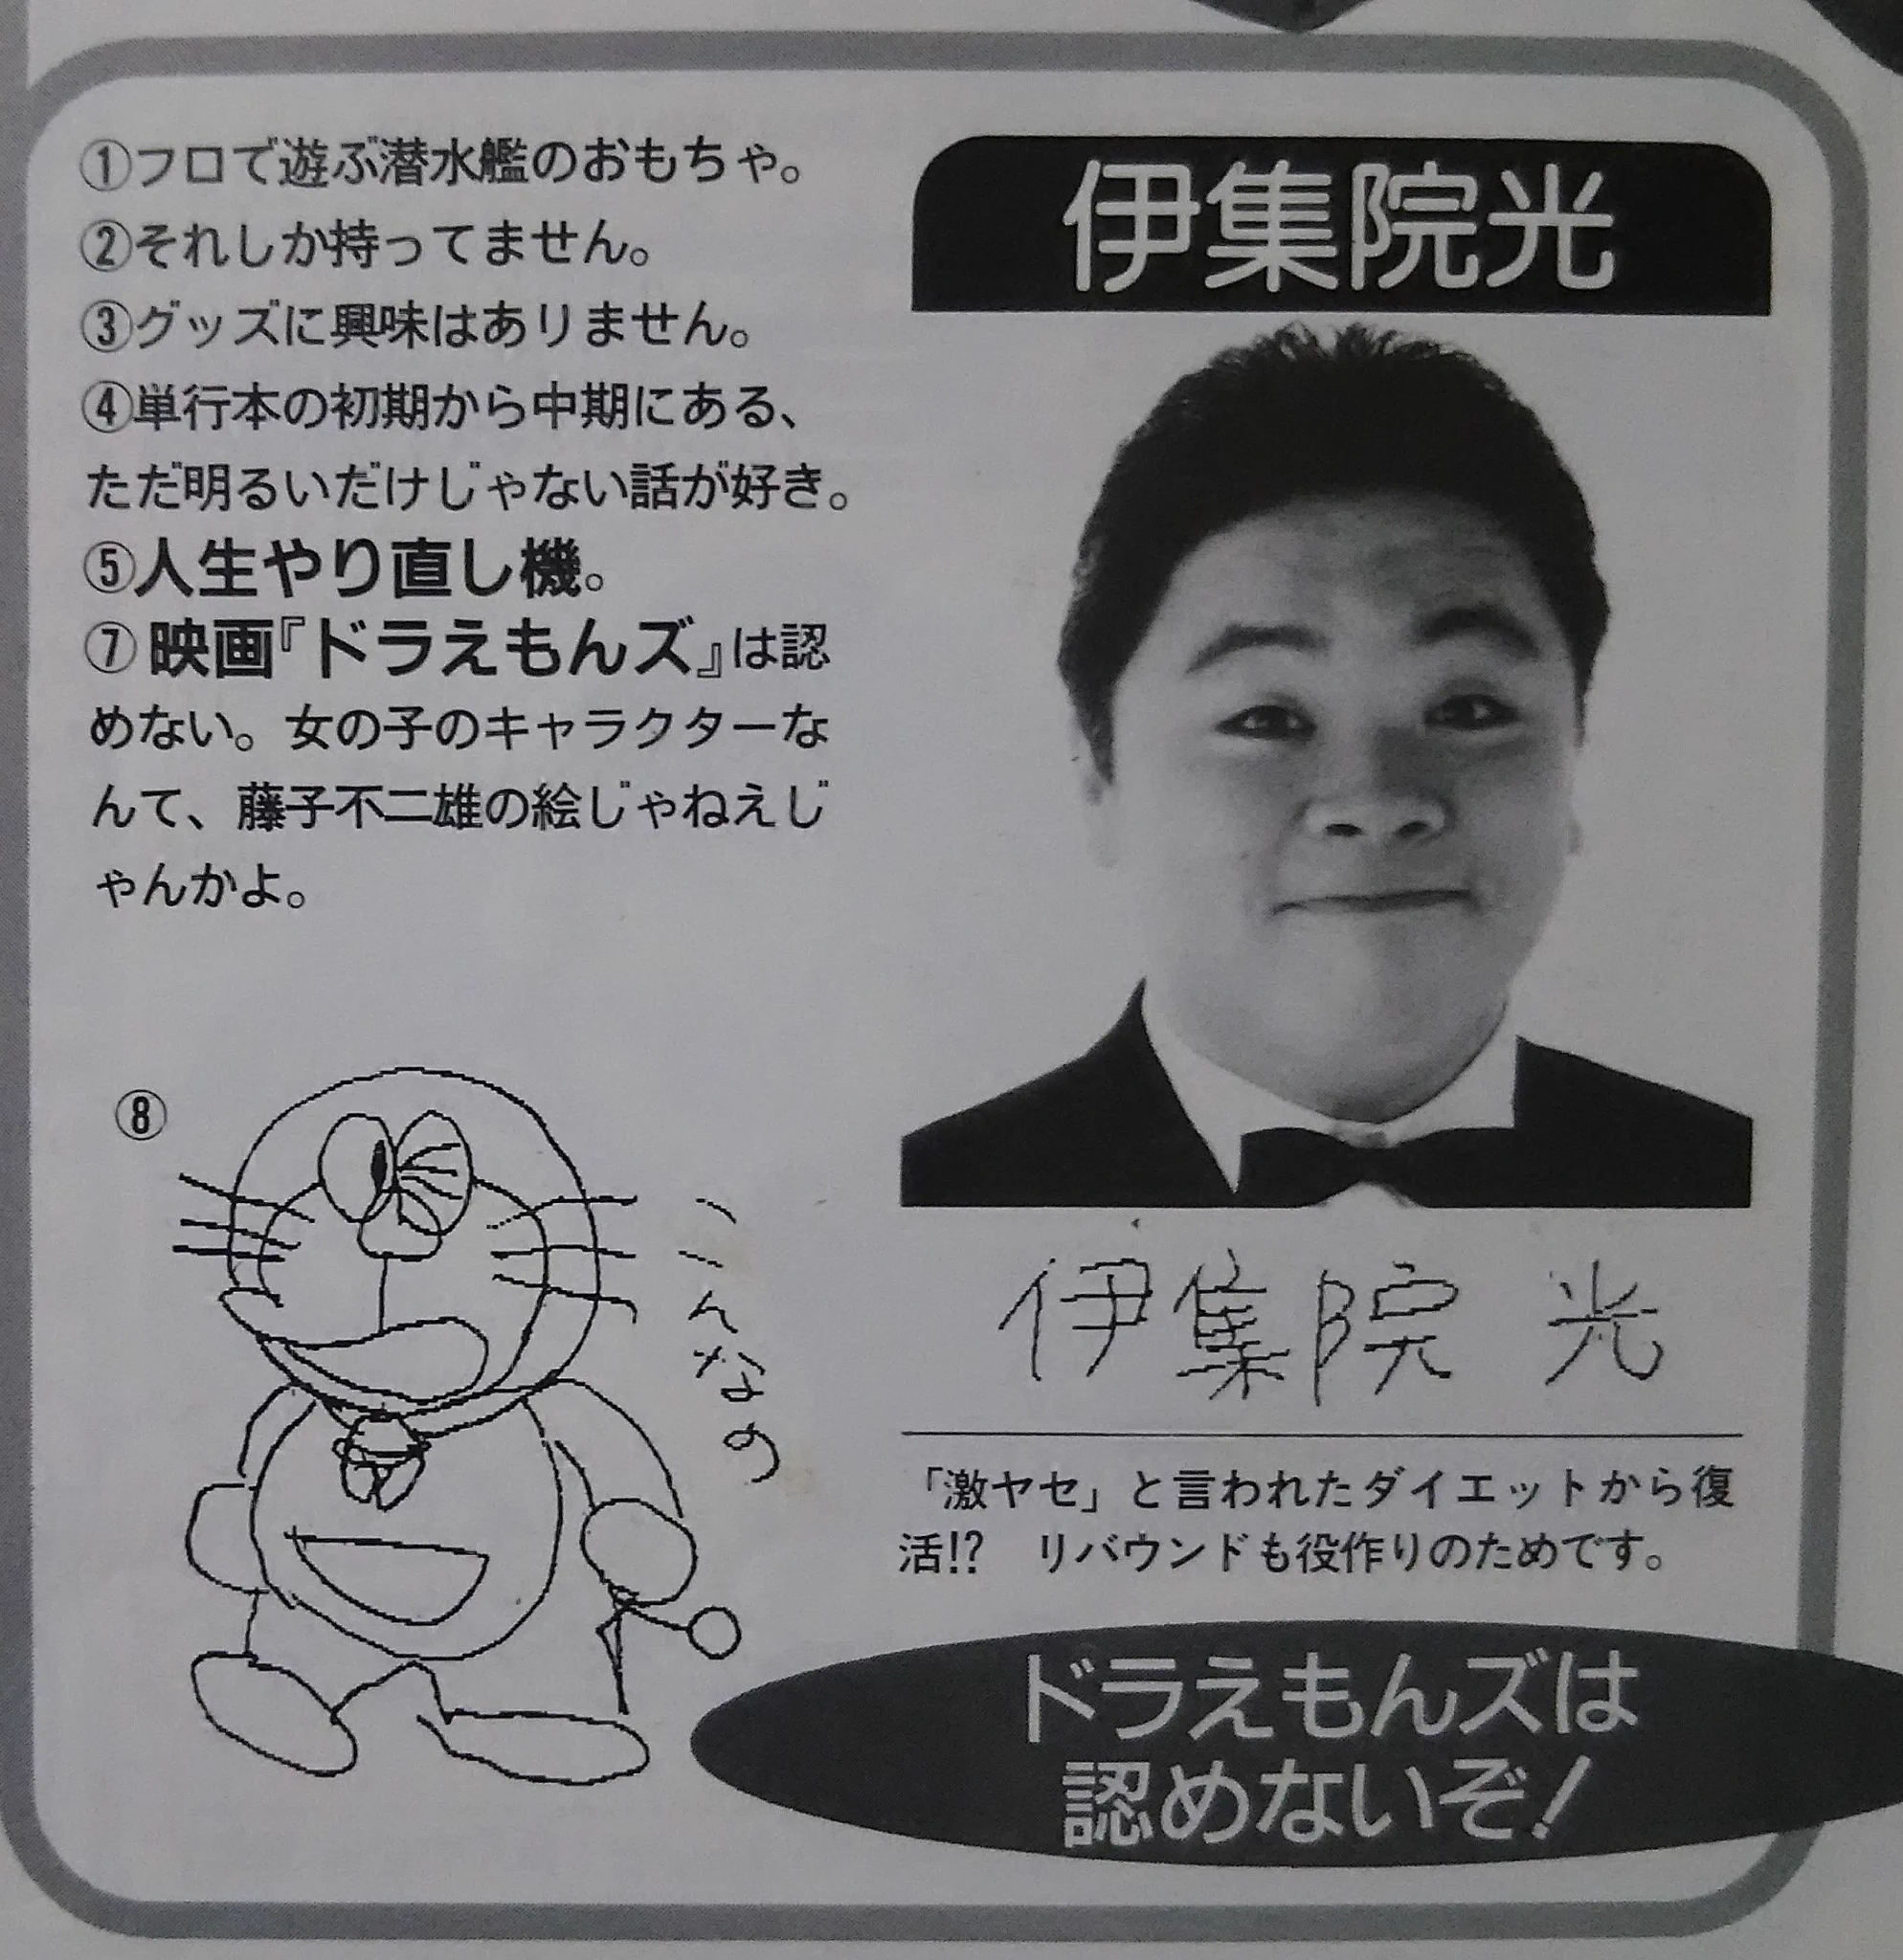 ①フロで遊ぶ潜水艦のおもちゃ。
②それしか持ってません。
③グッズに興味はありません。
④単行本の初期から中期にある、
ただ明るいだけじゃない話が好き。
⑤人生やり直し機。
⑦映画『ドラえもんズ』は認
めない。女の子のキャラクターな
んて、藤子不二雄の絵じゃねえじ
ゃんかよ。
⑧
こんなの
伊集院光
伊集院 光
「激ヤセ」と言われたダイエットから復
活!? リバウンドも役作りのためです。
ドラえもんズは
認めないぞ!